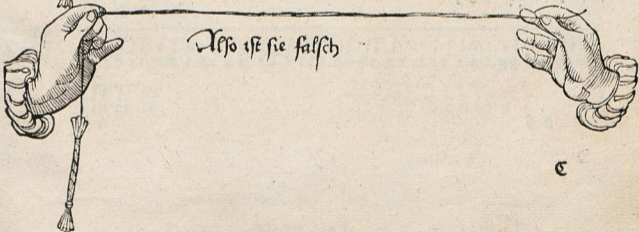 Also ist sie falsch
C